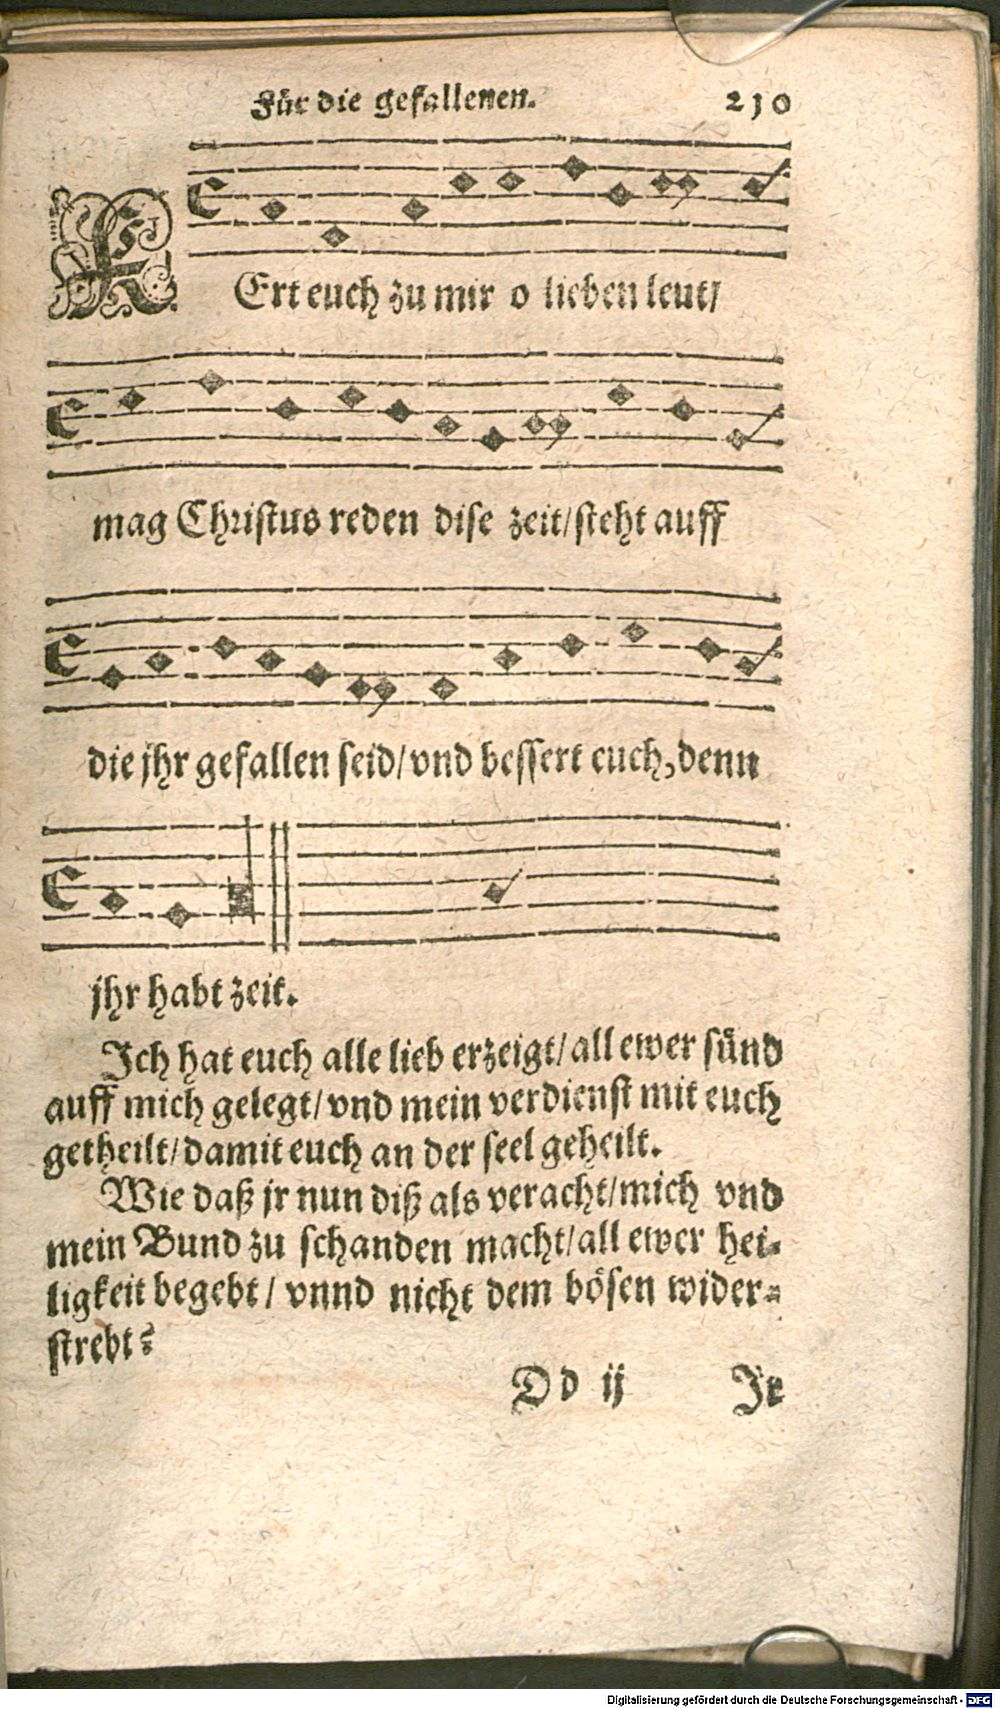 Für die gefallenen. 210
KErt euch zu mir o lieben leut/
mag Christus reden dise zeit/steht auff
die jhr gefallen seid/vnd bessert euch, denn
jhr habt zeit.
Ich hat euch alle lieb erzeigt/all ewer sünd
auff mich gelegt/vnd mein verdienst mit euch
getheilt/damit euch an der seel geheilt.
Wie daß jr nun diß als veracht/mich vnd
mein Bund zu schanden macht/all ewer hei-
ligkeit begebt/ vnnd nicht dem bösen wider-
strebt?
Dd ij Jr
Digitalisierung gefördert durch die Deutsche Forschungsgemeinschaft - DFG